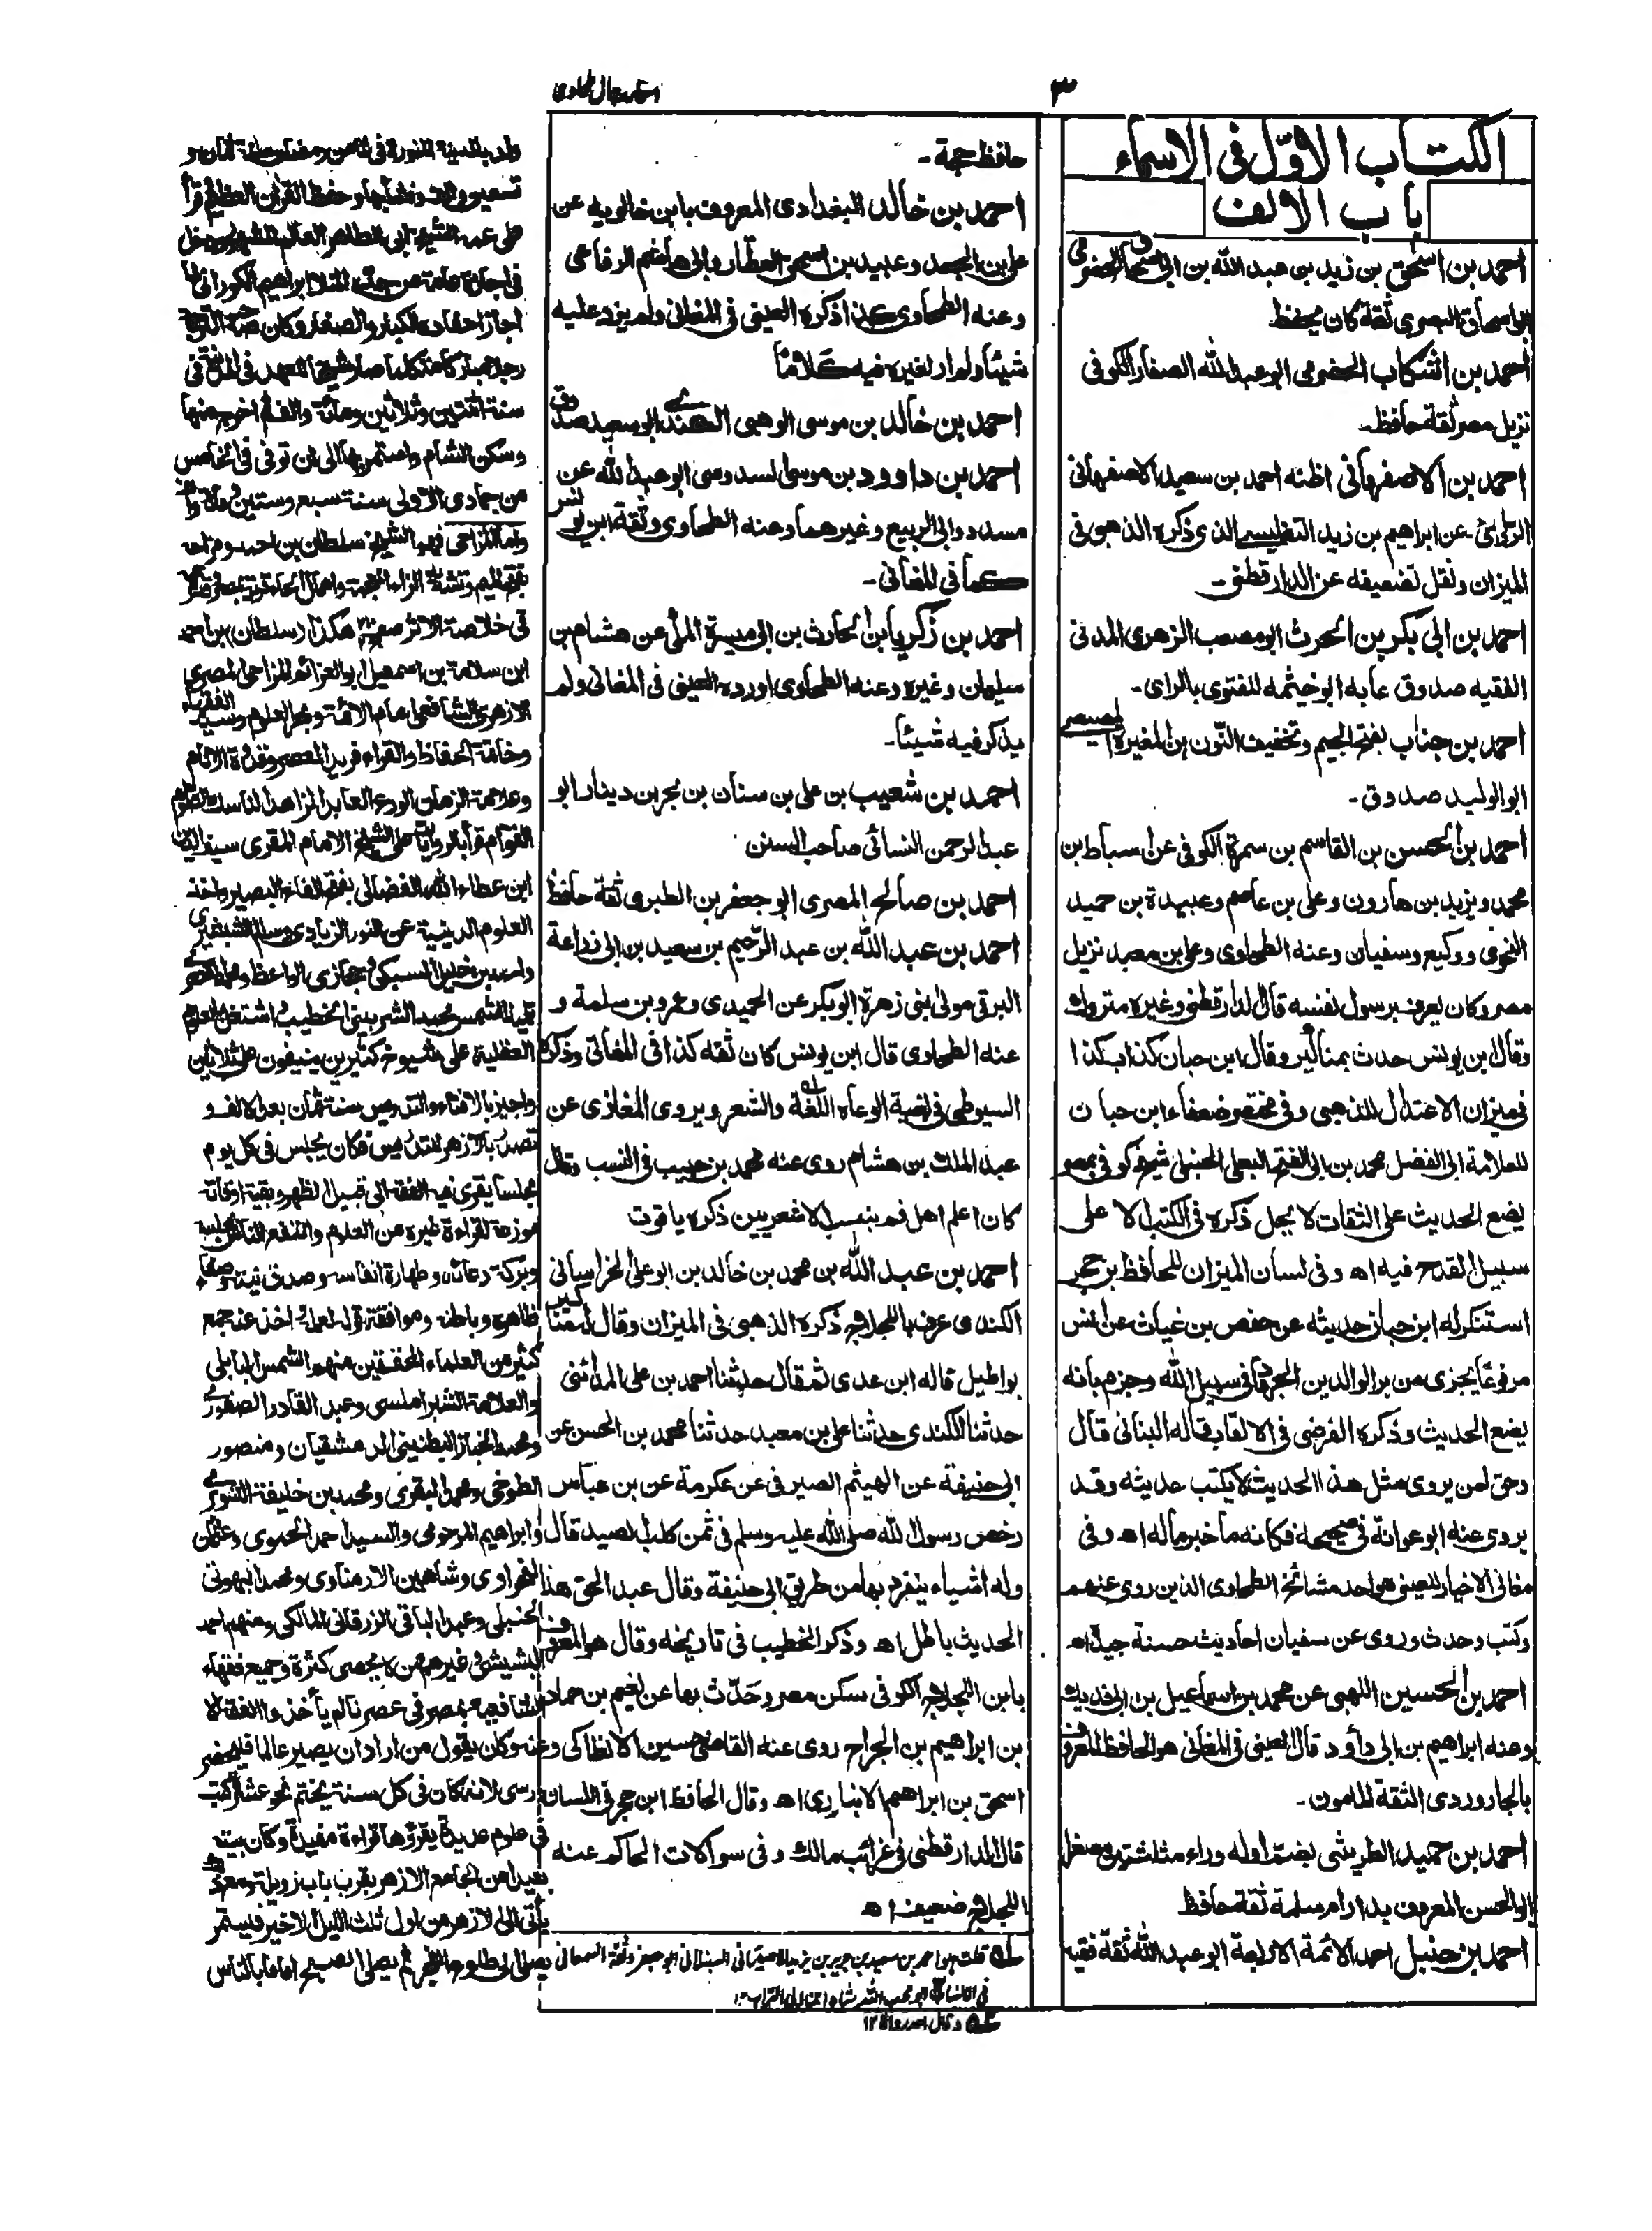 ٣
الكتاب الاوّل فى الاسماء
باب الالف
احمد بن اسحٰق بن زيد بن عبد الله بن ابى اسحاق الحضرمى
ابو اسحاق البصرى ثقة كان يحفظ
احمد بن اشكاب الحضرمى ابو عبد الله الصفار الكوفى
نزيل مصر ثقة حافظ۔
احمد بن الاصفهانى اظنه احمد بن سعيد الاصفهانى
عن ابراهيم بن زيد التفليسى الذى ذكره الذهبى فى
الميزان ونقل تضعيفه عن الدارقطنى۔
احمد بن ابى بكر بن الحرث ابو مصعب الزهرى المدنى
الفقيه صدوق عابه ابو خيثمه للفتوى بالراى۔
احمد بن جناب بفتح الجيم وتخفيف النّون بن المغيرة المصيصى
ابو الوليد صدوق۔
احمد بن الحسن بن القاسم بن سمرة الكوفى عن اسباط بن
محمد ويزيد بن هارون وعلى بن عاصم وعبيدة بن حميد
النحوى ووكيع وسفيان وعنه الطحاوى وعلى بن معبد نزيل
مصر وكان يعرف برسول نفسه قال الدارقطنى وغيره متروك
وقال ابن يونس حدث بمناكير وقال ابن حبان كذاب كذا
فى ميزان الاعتدال للذهبى وفى مختصر ضعفاء ابن حبان
للعلامة ابى الفضل محمد بن ابى الفتح البعلى الحنبلى شيخ كوفى بمصر
يضع الحديث على الثقات لا يحل ذكره فى الكتب الا على
سبيل القدح فيه اھ وفى لسان الميزان للحافظ بن حجر
استنكر له ابن حبان حديثه عن حفص بن غياث عن انس
مرفوعًا يجزى من بر الوالدين الجهاد فى سبيل الله وجزم بانه
يضع الحديث وذكره الفرضى فى الالقاب قاله البنانى قال
وحق لمن يروى مثل هذا الحديث لا يكتب حديثه وقد
يروى عنه ابو عوانة فى صحيحه فكانه ما خبر ماله اھ وفى
مغانى الاخيار للعينى هو احد مشائخ الطحاوى الذين روى عنهم
وكتب وحدث وروى عن سفيان احاديث حسنة جيدة اھ
احمد بن الحسين اللهبى عن محمد بن اسماعيل بن ابى فديك
وعنه ابراهيم بن ابى داؤد قال العينى فى المغانى هو الحافظ المعروف
بالجارودى الثقة المامون۔
احمد بن حميد الطريثى بضم اوله وراء مثلثة مصغرا
ابو الحسن المعروف بدار ام سلمة ثقة حافظ
احمد بن حنبل احد الائمة الاربعة ابو عبد الله ثقة فقيه
حافظ حجة۔
احمد بن خالد البغدادى المعروف بابن خالويه عن
على بن الجعد وعبيد بن اسحٰق العطار وابى هاشم الرفاعى
وعنه الطحاوى كذا ذكره العينى فى المغانى ولم يزد عليه
شيئًا ولم ار لغيره فيه كلامًا
احمد بن خالد بن موسى الوهبى الكندى ابو سعيد صدوق
احمد بن داوود بن موسى السدوسى ابو عبد الله عن
مسدد وابى الربيع وغيرهما وعنه الطحاوى وثقه ابن يونس
كما فى المغانى۔
احمد بن زكريا بن الحارث بن ابى ميسرة المكى عن هشام بن
سليمان وغيره وعنه الطحاوى اورده العينى فى المغانى ولم
يذكر فيه شيئًا۔
احمد بن شعيب بن على بن سنان بن بحر بن دينار ابو
عبد الرحمن النسائى صاحب السنن
احمد بن صالح المصرى ابو جعفر بن الطبرى ثقة حافظ
احمد بن عبد الله بن عبد الرّحيم بن سعيد بن ابى زراعة
البرقى مولى بنى زهرة ابو بكر عن الحميدى وعمرو بن سلمة و
عنه الطحاوى قال ابن يونس كان ثقه كذا فى المغانى وذكره
السيوطى فى بغية الوعاه اللغة والشعر ويروى المغازى عن
عبد الملك بن هشام روى عنه محمد بن حبيب فى النسب وقال
كان اعلم اهل قم بنسب الاشعريين ذكره ياقوت
احمد بن عبد الله بن محمد بن خالد بن ابو على الخراسانى
الكندى عرف باللجلاج ذكره الذهبى فى الميزان وقال له مناكير
بواطيل قاله ابن عدى ثم قال حدثنا احمد بن على المدائنى
حدثنا الكندى حدثنا على بن معبد حدثنا محمد بن الحسن عن
ابى حنيفة عن الهيثم الصيرفى عن عكرمة عن بن عباس
رخص رسول الله صلى الله عليه وسلم فى ثمن كلب الصيد قال
وله اشياء ينفرد بها من طريق ابى حنيفة وقال عبد الحق هذا
الحديث باطل اھ وذكر الخطيب فى تاريخه وقال هو المعروف
بابن اللجلاج الكوفى سكن مصر وحدّث بها عن نعيم بن حماد
بن ابراهيم بن الجراح روى عنه القاضى حسين الانطاكى وعنه
اسحٰق بن ابراهيم الانبارى اھ وقال الحافظ ابن حجر فى اللسان
قال الدارقطنى فى غرائب مالك وفى سوالات الحاكم عنه
اللجلاج ضعيف اھ
فى الانساب
ولد بالمدينة المنورة فى ثامن رمضان سنة ثمان و
تسعين والف ونشأ بها وحفظ القرآن العظيم وقرأ
اجاز احفاده الكبار والصغار وكان
سنة اثنتين وثلاثين ومائة والف ثم اخرج منها
وسكن الشام واستمر بها الى ان توفى فى الخامس
من جمادى الاولى سنة سبع وستين ومائة
واما المزاحى فهو الشيخ سلطان بن احمد
فى خلاصة الاثر هكذا (سلطان) بن احمد
ابن سلامة بن اسمعيل ابو العزائم المزاحى المصرى
الازهرى الشافعى امام الائمة وبحر العلوم وسيد الفقهاء
وخاتمة الحفاظ والقراء فريد العصر وقدوة الانام
وعلامة الزمان الورع العابد الزاهد الناسك الصوام
القوام قرأ بالروايات على الشيخ الامام المقرى سيف الدين
ابن عطاء الله الفضالى بفتح الفاء البصير واخذ
العلوم الدينية عن النور الزيادى وسالم الشبشيرى
العقلية على شيوخ كثيرين ينيفون على ثلاثين
واجيز بالافتاء والتدريس سنة ثمان بعد الالف و
تصدر بالازهر للتدريس فكان يجلس فى كل يوم
مجلسا يقرى فيه الفقه الى قبيل الظهر وبقية اوقاته
موزعة لقراءة غيره من العلوم وانتفع الناس بمجلسه
وبركة دعائه وطهارة انفاسه وصدق نيته وصفاء
ظاهره وباطنه وموافقة قوله لعمله اخذ عنه جمع
كثير من العلماء المحققين منهم الشمس البابلى
والعلامة الشبراملسى وعبد القادر الصفورى
ومحمد الخباز البطنينى الدمشقيان ومنصور
الطوخى ومحمد البقرى ومحمد بن خليفة الشوبرى
وابراهيم المرحومى والسيد احمد الحموى وعثمان
النحراوى وشاهين الارمناوى ومحمد البهوتى
الحنبلى وعبد الباقى الزرقانى المالكى ومنهم احمد
البشبيشى وغيرهم من لا يحصى كثرة وجميع فقهاء
الشافعية بمصر فى عصرنا لم يأخذوا الفقه الا
عنه وكان يقول من اراد ان يصير عالما فليحضر
درسى لانه كان فى كل سنة يختم نحو عشر كتب
فى علوم عديدة يقرؤها قراءة مفيدة وكان بيته
بعيدا من الجامع الازهر بقرب باب زويلة ومع ذلك
يأتى الى الازهر من اول ثلث الليل الاخير فيستمر
يصلى الى طلوع الفجر ثم يصلى الصبح اماما بالناس